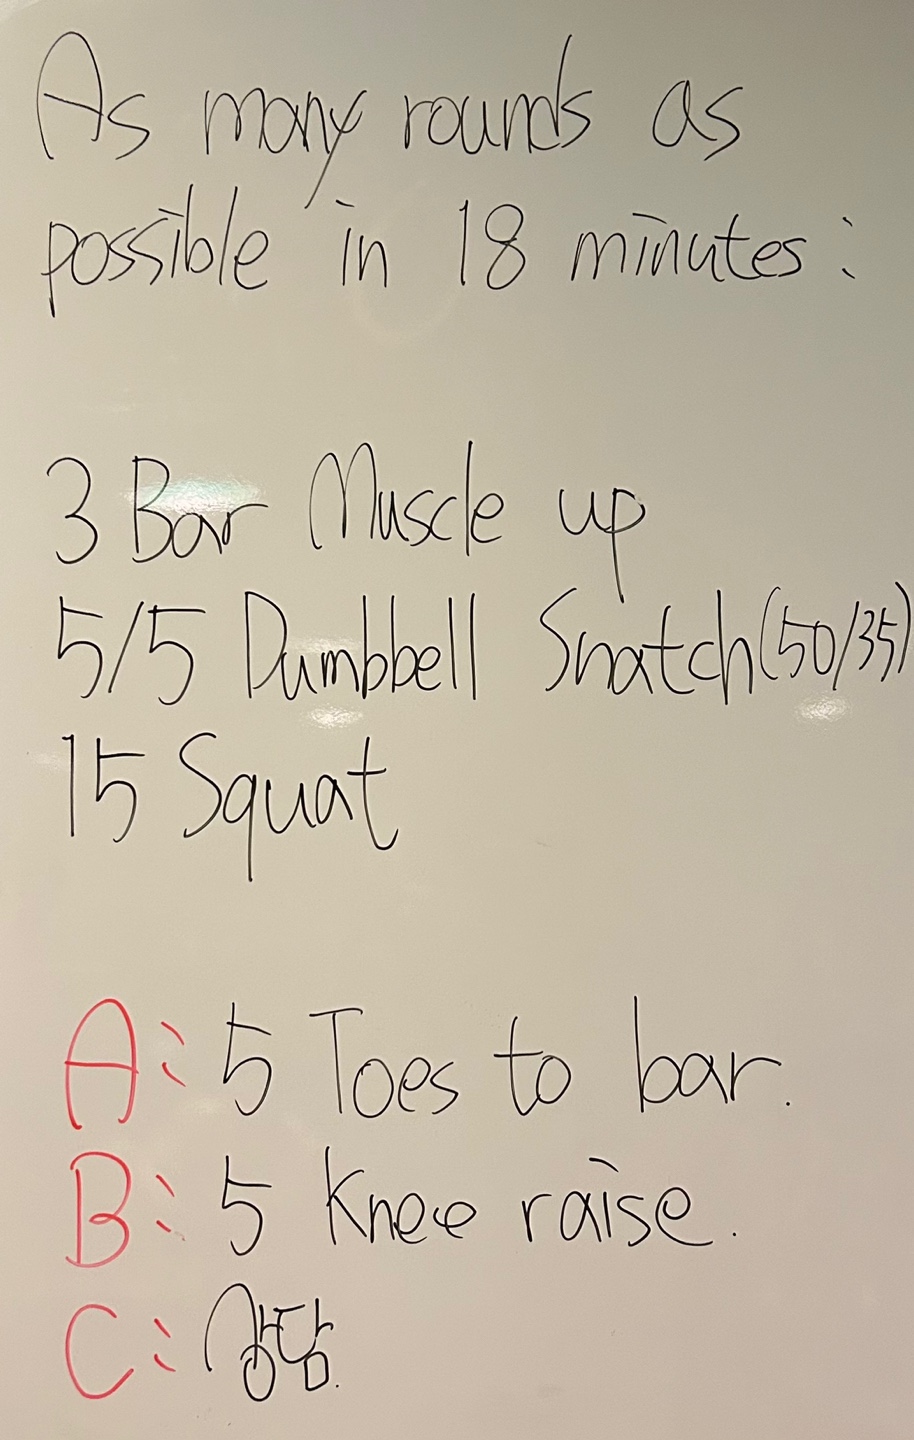 As many rounds as
possible in 18 minutes:
3 Bar Muscle up
5/5 Dumbbell Snatch(50/35)
15 Squat
A: 5 Toes to bar.
B: 5 Knee raise.
C: 상담.